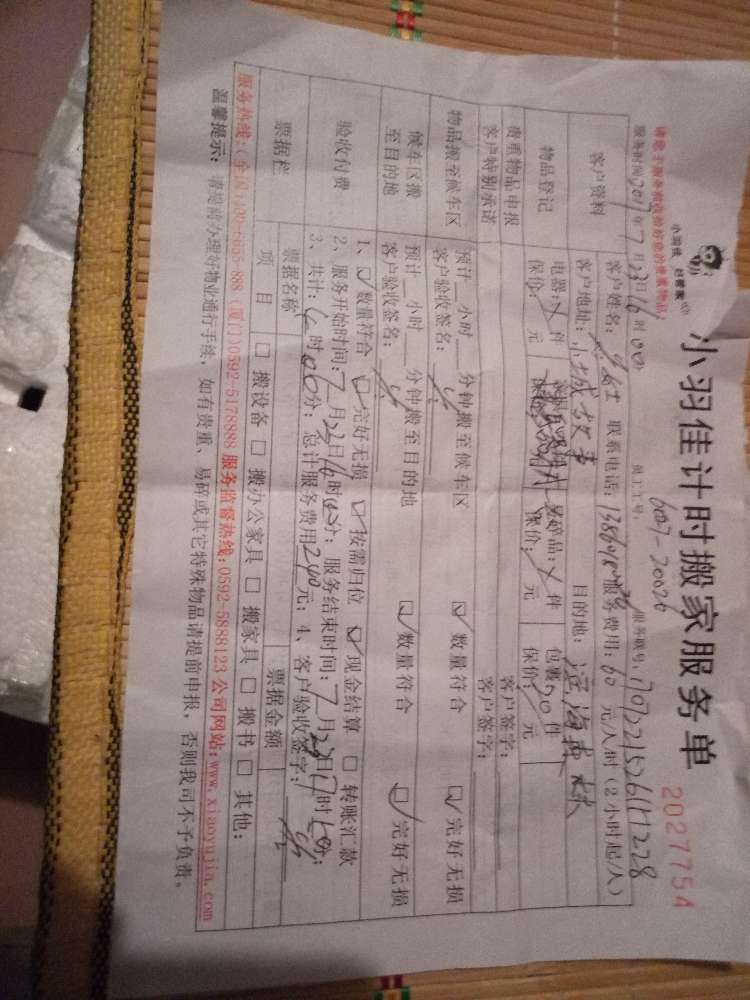 小羽佳计时搬家服务单
2027754
小羽佳
请您于服务前收拾好您的贵重物品。
员工工号:
6007-20026
服务时间2017年7月23日16时00分
客户资料
客户姓名: 联系电话: 服务费用:60元/人/时(2小时起/人)
客户地址:小城故事 目的地:滨海
物品登记
电器: 件 易碎品: 件 包裹 件
保价: 元 保价: 元 保价: 元
贵重物品申报
客户签字:
客户特别承诺
客户签字:
物品搬至候车区
预计 小时 分钟搬至候车区 数量符合 完好无损
客户验收签名:
候车区搬至目的地
预计 小时 分钟搬至目的地 数量符合 完好无损
客户验收签名:
验收付费
1、 数量符合 完好无损 按需归位 现金结算 转账汇款
2、服务开始时间:7月23日16时 分;服务结束时间:7月23日17时 分;
3、共计: 时 分;总计服务费用240元;4、客户验收签字:
票据栏
票据名称 票据金额
项目 搬设备 搬办公家具 搬家具 搬书 其他:
服务热线:(全国)400-6655-888 (厦门)0592-5178888 服务监督热线:0592-5888123 公司网站:www.xiaoyujia.com
温馨提示:请提前办理好物业通行手续,如有贵重、易碎或其它特殊物品请提前申报,否则我司不予负责。